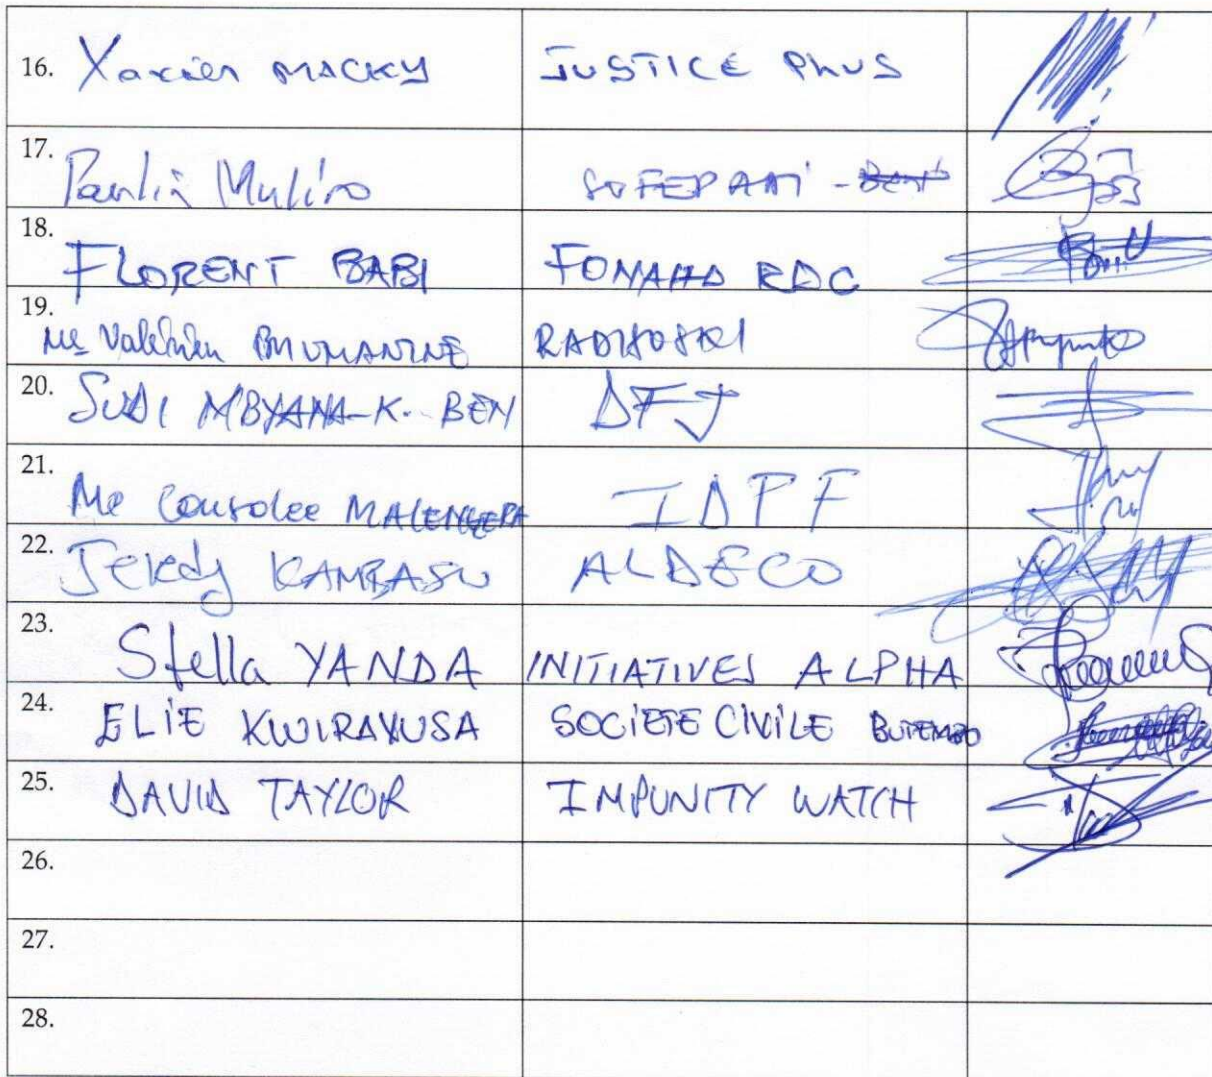 16. Xavier MACKY JUSTICE PLUS
17. Paulin Muliro SOFEPADI - BENI
18. FLORENT BABI FOMAHD RDC
19. Me BMUMANINE
20. SUDI MBYANA-K. BEN DFJ
21. Me Consolee MALENGERA IDPF
22. Jekedy KAMBASU ALDECO
23. Stella YANDA INITIATIVES ALPHA
24. ELIE KWIRAVUSA SOCIETE CIVILE BUTEMBO
25. DAVID TAYLOR IMPUNITY WATCH
26.
27.
28.